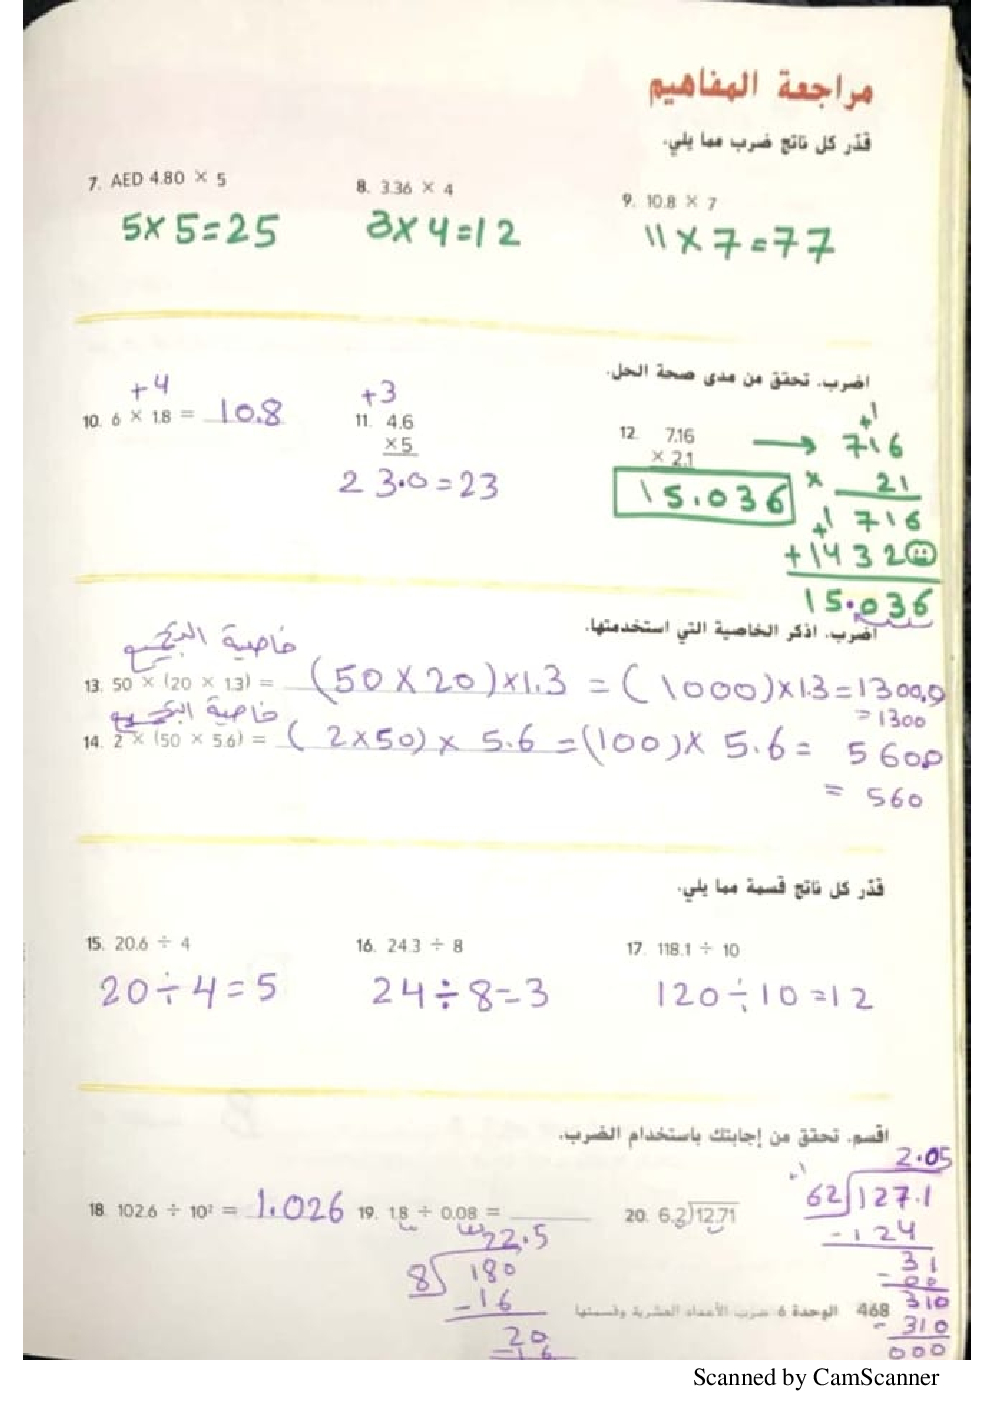 مراجعة المفاهيم
قدّر كل ناتج ضرب مما يلي.
7. AED 4.80 × 5 8. 3.36 × 4 9. 10.8 × 7
5×5=25 3×4=12 11×7=77
اضرب. تحقق من مدى صحة الحل.
+4 +3 +1
10. 6 × 1.8 = 10.8 11. 4.6 12. 7.16 → 716
×5 × 2.1 × 21
23.0=23 15.036 +1 716
+1432
15.036
اضرب. اذكر الخاصية التي استخدمتها.
خاصية التجميع
13. 50 × (20 × 1.3) = (50×20)×1.3 = (1000)×1.3=1300.0
=1300
خاصية التجميع
14. 2 × (50 × 5.6) = (2×50)× 5.6 =(100)× 5.6= 560.0
= 560
قدّر كل ناتج قسمة مما يلي.
15. 20.6 ÷ 4 16. 24.3 ÷ 8 17. 118.1 ÷ 10
20÷4=5 24÷8=3 120÷10=12
اقسم. تحقق من إجابتك باستخدام الضرب.
2.05
18. 102.6 ÷ 10² = 1.026 19. 1.8 ÷ 0.08 = ______ 20. 6.2)12.71 62)127.1
22.5 -124
8)180 31
-16 -00
20 310
-16 -310
000
468 الوحدة 6 ضرب الأعداد العشرية وقسمتها
Scanned by CamScanner